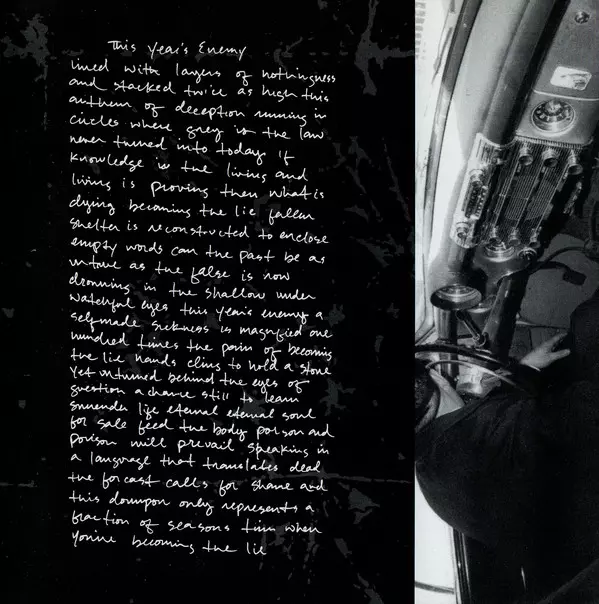 This Year's Enemy
lined with layers of nothingness
and stacked twice as high this
anthem of deception running in
circles where grey is the law
never turned into today if
knowledge is the living and
living is proving then what is
dying becoming the lie fallen
shelter is reconstructed to enclose
empty words can the past be as
untrue as the false is now
drowning in the shallow under
watchful eyes this year's enemy a
selfmade sickness is magnified one
hundred times the pain of becoming
the lie hands cling to hold a stone
yet unturned behind the eyes of
question a chance still to learn
surrender life eternal eternal soul
for sale feed the body poison and
poison will prevail speaking in
a language that translates dead
the forcast calls for shame and
this downpor only represents a
fraction of seasons turn when
you're becoming the lie